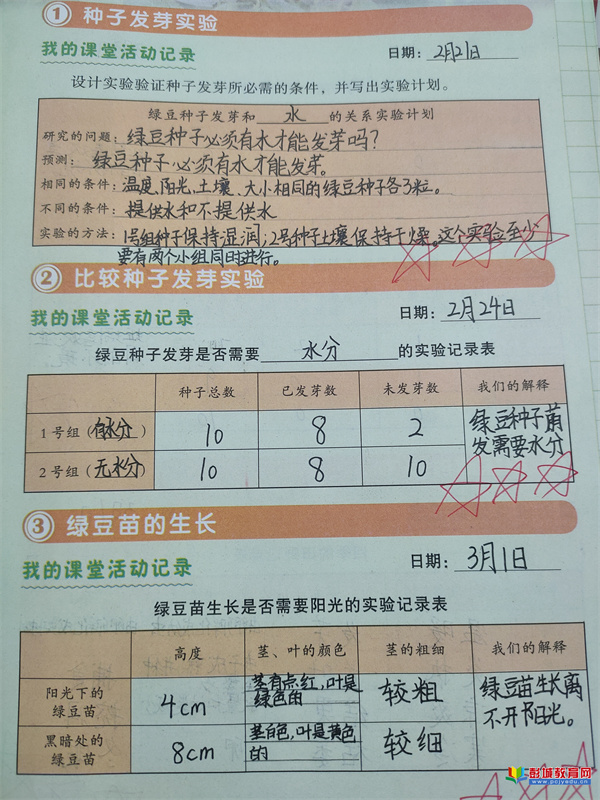 ① 种子发芽实验
我的课堂活动记录 日期：2月21日
设计实验验证种子发芽所必需的条件，并写出实验计划。
绿豆种子发芽和 水 的关系实验计划
研究的问题：绿豆种子必须有水才能发芽吗？
预测：绿豆种子必须有水才能发芽。
相同的条件：温度、阳光、土壤、大小相同的绿豆种子各3粒。
不同的条件：提供水和不提供水
实验的方法：1号组种子保持湿润，2号种子土壤保持干燥。这个实验至少
要有两个小组同时进行。
② 比较种子发芽实验
我的课堂活动记录 日期：2月24日
绿豆种子发芽是否需要 水分 的实验记录表
种子总数 已发芽数 未发芽数 我们的解释
1号组（有水分） 10 8 2 绿豆种子萌
发需要水分
2号组（无水分） 10 8 10
③ 绿豆苗的生长
我的课堂活动记录 日期：3月1日
绿豆苗生长是否需要阳光的实验记录表
高度 茎、叶的颜色 茎的粗细 我们的解释
阳光下的
绿豆苗 4cm 茎有点红，叶是
绿色的 较粗 绿豆苗生长离
不开阳光。
黑暗处的
绿豆苗 8cm 茎白色，叶是黄色
的 较细
彭城教育网
www.pcjyedu.cn